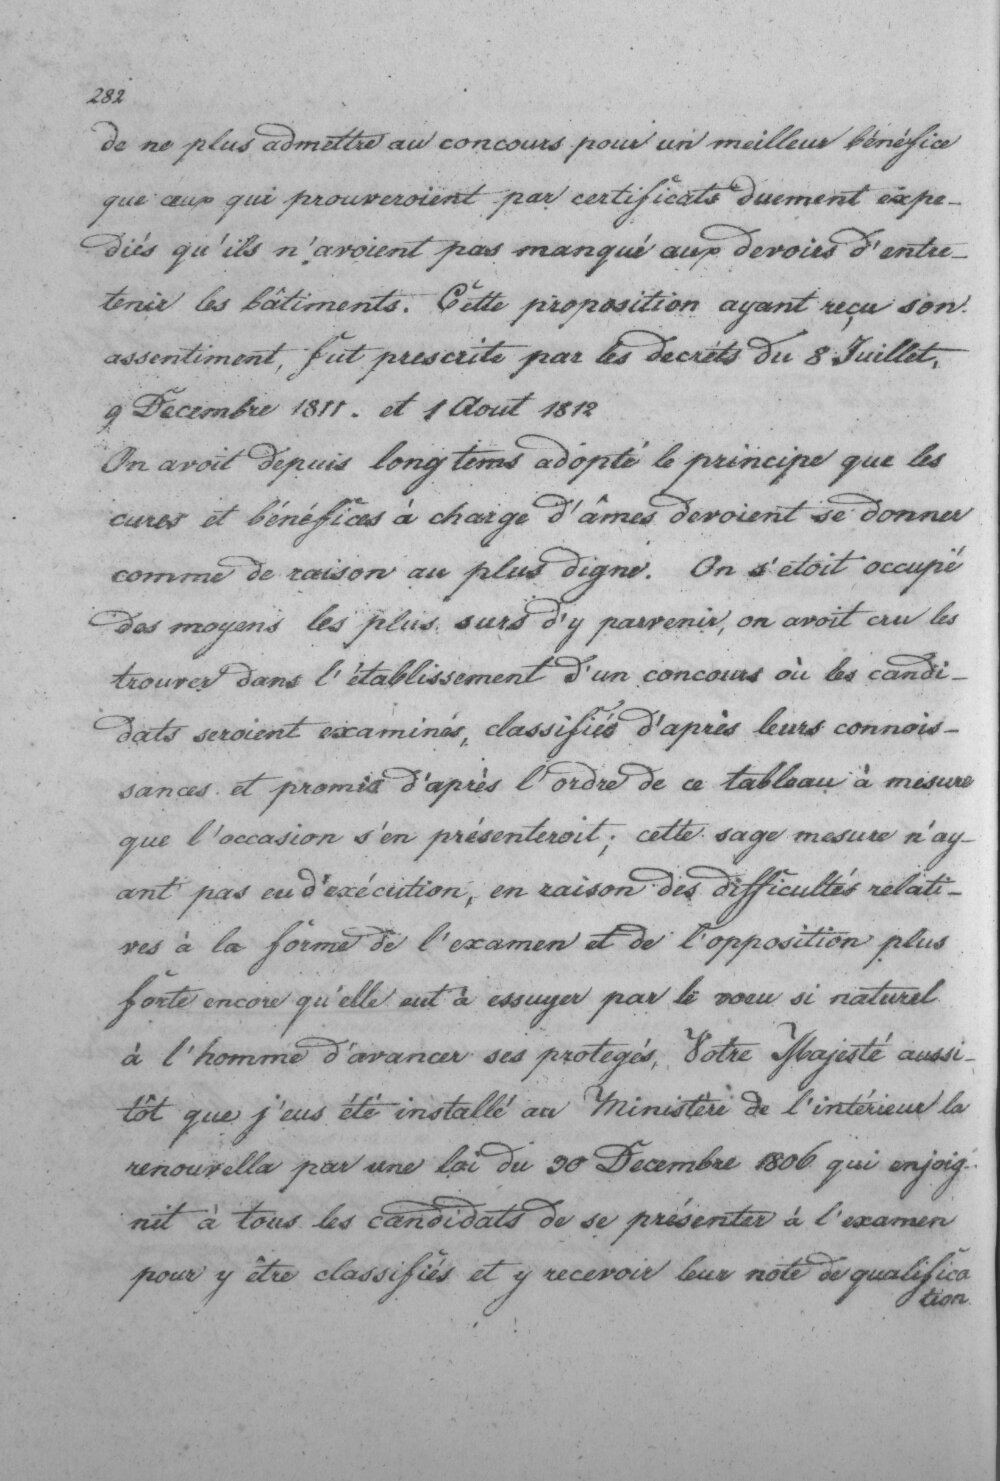 282
de ne plus admettre au concours pour un meilleur bénéfice
que ceux qui prouveroient par certificats duement expe-
diés qu'ils n'avoient pas manqué aux devoirs d'entre-
tenir les bâtiments. Cette proposition ayant reçu son
assentiment, fut prescrite par les decréts du 8 Juillet,
9 Decembre 1811. et 1 Aout 1812
On avoit depuis long tems adopté le principe que les
cures et bénéfices à charge d'âmes devoient se donner
comme de raison au plus digne. On s'etoit occupé
des moyens les plus surs d'y parvenir, on avoit cru les
trouver dans l'établissement d'un concours où les candi-
dats seroient examinés, classifiés d'après leurs connois-
sances et promis d'après l'ordre de ce tableau à mesure
que l'occasion s'en présenteroit; cette sage mesure n'ay-
ant pas eu d'exécution, en raison des difficultés relati-
ves à la forme de l'examen et de l'opposition plus
forte encore qu'elle eut à essuyer par le voeu si naturel
à l'homme d'avancer ses protegés, Votre Majesté aussi-
tôt que j'eus été installé au Ministère de l'intérieur la
renouvella par une loi du 30 Decembre 1806 qui enjoig-
nit à tous les candidats de se présenter à l'examen
pour y être classifiés et y recevoir leur note de qualifica
tion